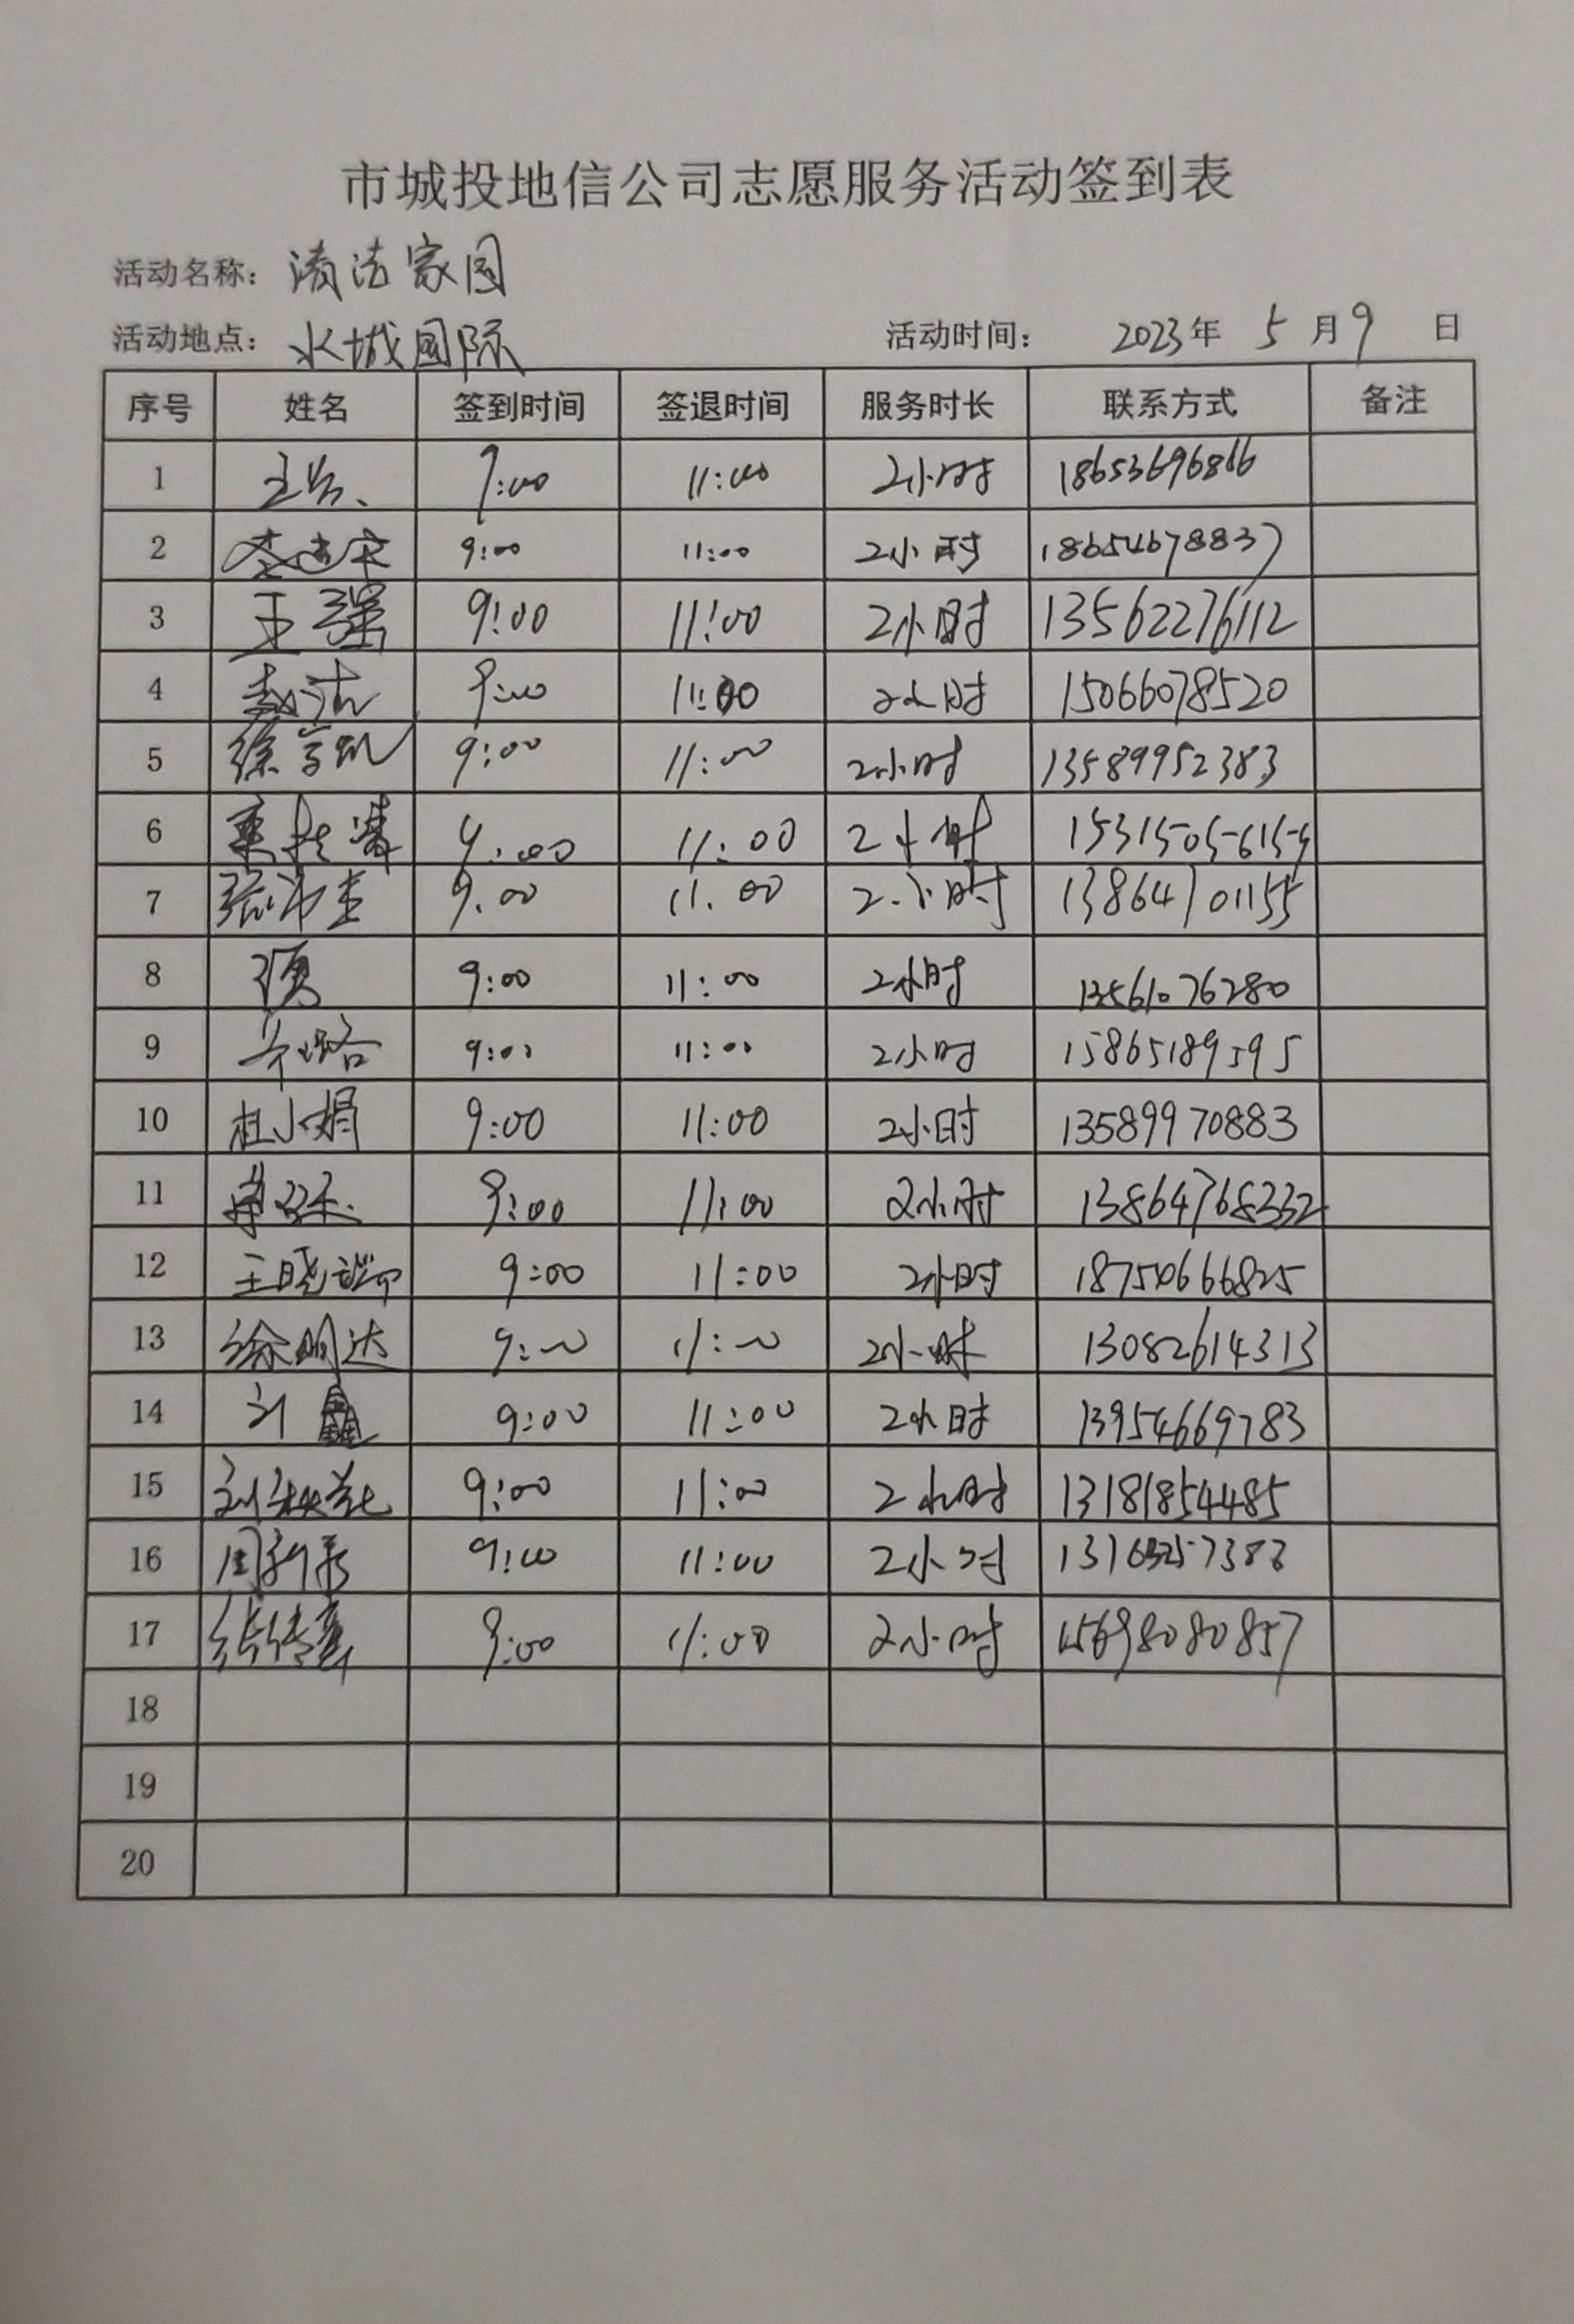 市城投地信公司志愿服务活动签到表
活动名称: 清洁家园
活动地点: 水城国际 活动时间: 2023年 5 月 9 日
序号 姓名 签到时间 签退时间 服务时长 联系方式 备注
1 9:00 11:00 2小时
2 9:00 11:00 2小时 18654678837
3 王强 9:00 11:00 2小时 13562276112
4 赵洁 9:00 11:00 2小时 15066078520
5 9:00 11:00 2小时 13589952383
6 9:00 11:00 2小时
7 9:00 11:00 2小时 13864701155
8 9:00 11:00 2小时 13561076280
9 9:00 11:00 2小时 15865189595
10 杜小娟 9:00 11:00 2小时 13589970883
11 9:00 11:00 2小时 13864768332
12 9:00 11:00 2小时 18750666825
13 徐明达 9:00 11:00 2小时 13082614313
14 刘鑫 9:00 11:00 2小时 13954669783
15 9:00 11:00 2小时 13181854485
16 9:00 11:00 2小时
17 9:00 11:00 2小时 15698080857
18
19
20